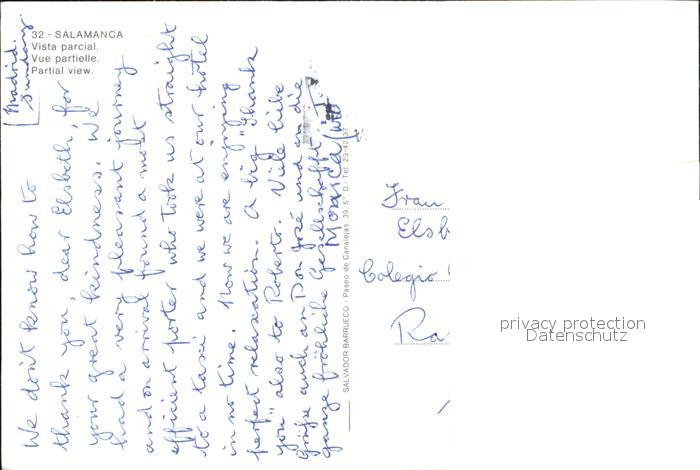 32 - SALAMANCA
Vista parcial.
Vue partielle.
Partial view.
Madrid.
Sunday.
We don't know how to
thank you, dear Elsbeth, for
your great kindness. We
had a very pleasant journey
and on arrival found a most
efficient porter who took us straight
to a taxi and we were at our hotel
in no time. Now we are enjoying
perfect relaxation. A big "Thank
you" also to Roberto. Viele liebe
Grüße auch an Don José und an die
ganze fröhliche Gesellschaft.
SALVADOR BARRUECO - Paseo de Canalejas, 39, 5° D - Tel. 23 42 37
Frau
Elsb
Colegio
Ra
privacy protection
Datenschutz